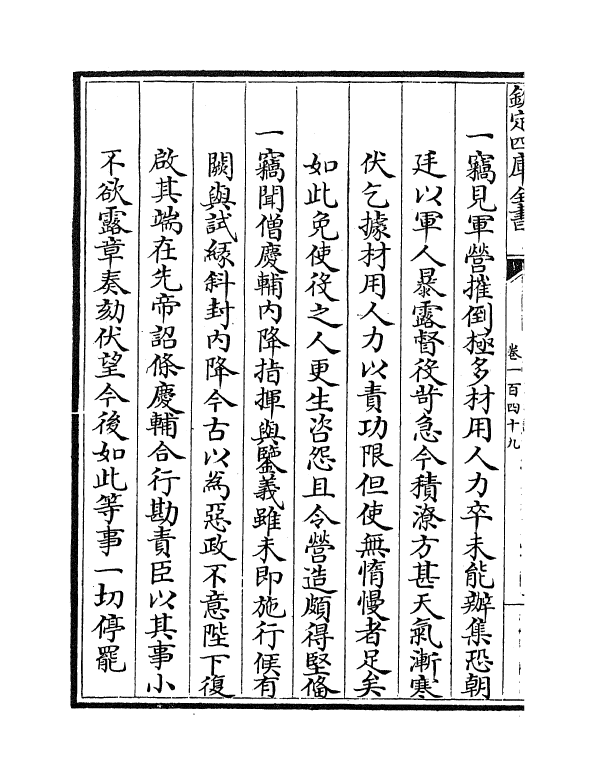 欽定四庫全書
卷一百四十九
一竊見軍營摧倒極多材用人力卒未能辦集恐朝
廷以軍人暴露督役苛急今積潦方甚天氣漸寒
伏乞據材用人力以責功限但使無惰慢者足矣
如此免使役之人更生咨怨且令營造頗得堅偹
一竊聞僧慶輔内降指揮與鑒義雖未即施行候有
闕與試縁斜封内降今古以為惡政不意陛下復
啟其端在先帝詔條慶輔合行勘責臣以其事小
不欲露章奏劾伏望今後如此等事一切停罷